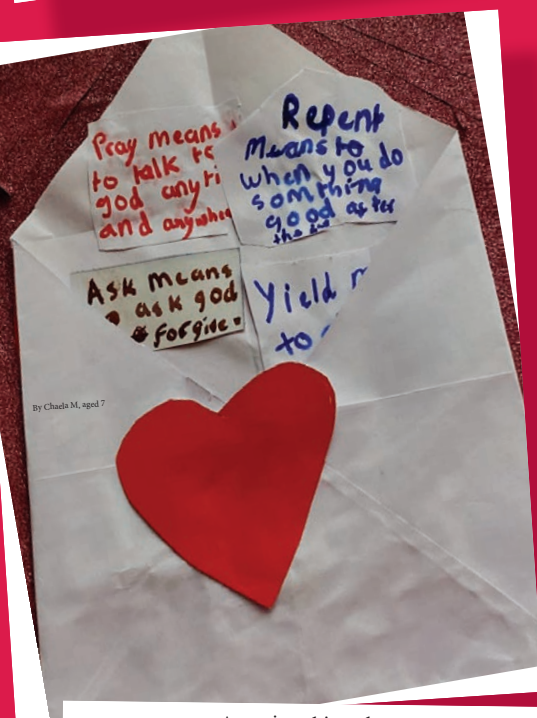 Pray means
to talk to
god anyti
and anywhe
Repent
Means to
when you do
somthing
good after
the
Ask means
ask god
forgive
Yield
to
By Chaela M, aged 7